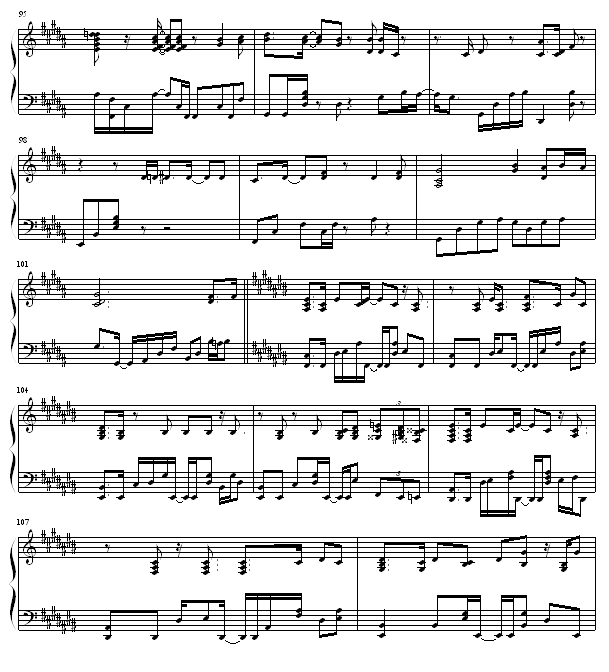 95
98
101
104
3
3
107